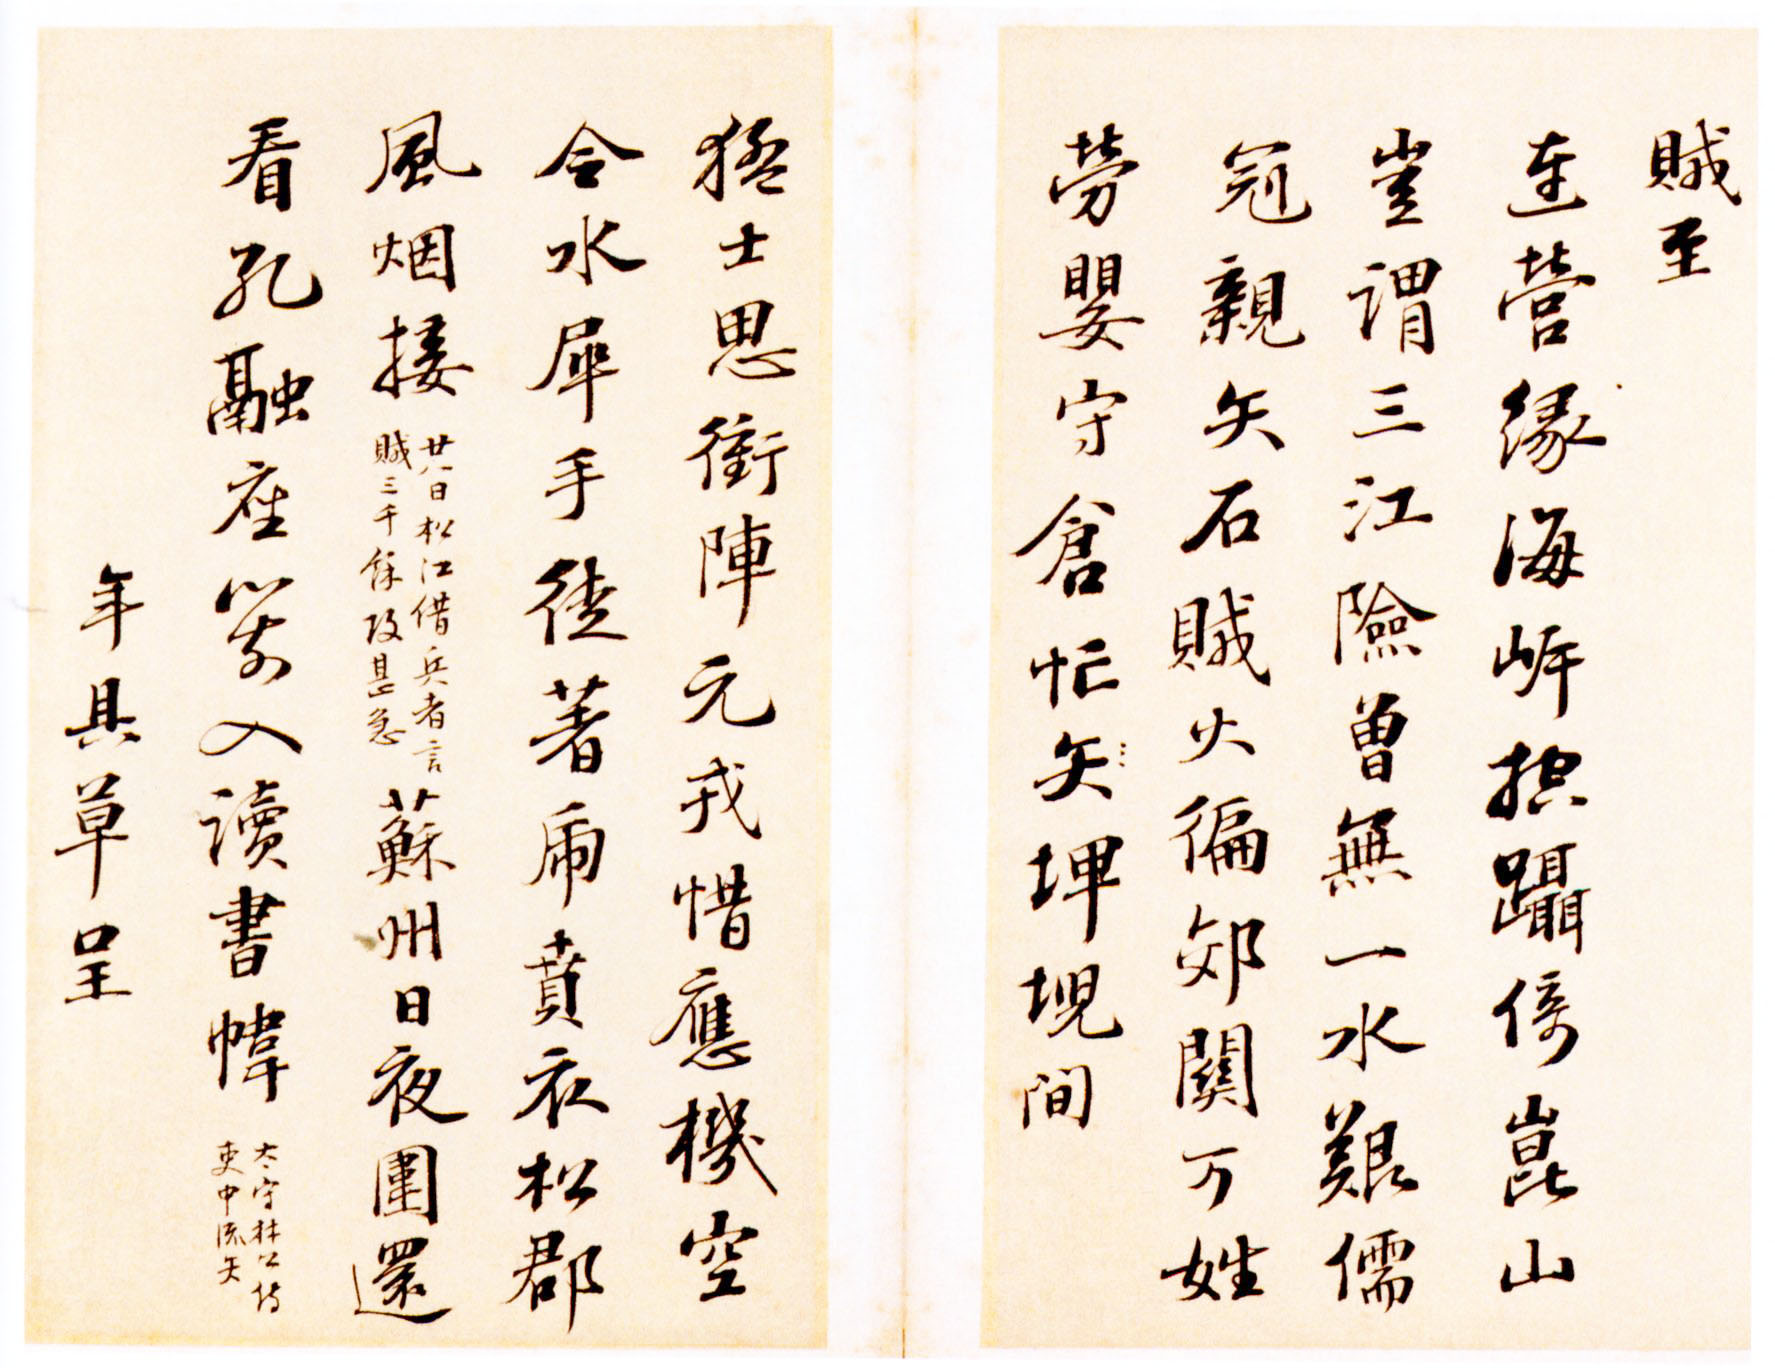 賊至
連營緣海岍抱躡倚崑山
豈謂三江險曾無一水艱儒
冠親矢石賊火徧郊關万姓
劳嬰守倉忙矢埤堄間
猛士思衝陣元戎惜應機空
令水犀手徒著虎賁衣松郡
風烟接
廿八日松江借兵者言
賊三千餘攻甚急
蘇州日夜圍還
看孔融座箭入讀書幃
太守林公侍
吏中流矢
年具草呈